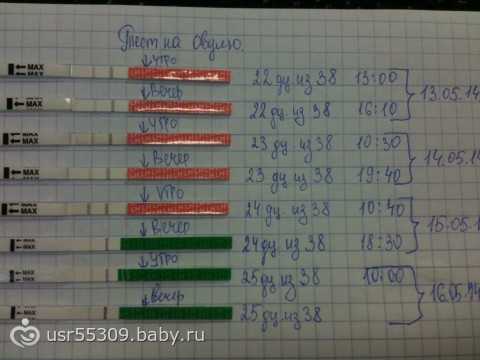 Тест на овуляю.
↓утро
←MAX 22 дц из 38 13:00
↓Вечер 13.05.14
←MAX 22 дц из 38 16:10
↓утро
←MAX 23 дц из 38 10:30
↓Вечер 14.05.14
←MAX 23 дц из 38 19:40
↓утро
←MAX 24 дц из 38 10:40
↓Вечер 15.05.1
←MAX 24 дц из 38 18:30
↓утро
←MAX 25 дц из 38 10:00
↓вечер 16.05.14
←MAX 25 дц из 38
usr55309.baby.ru